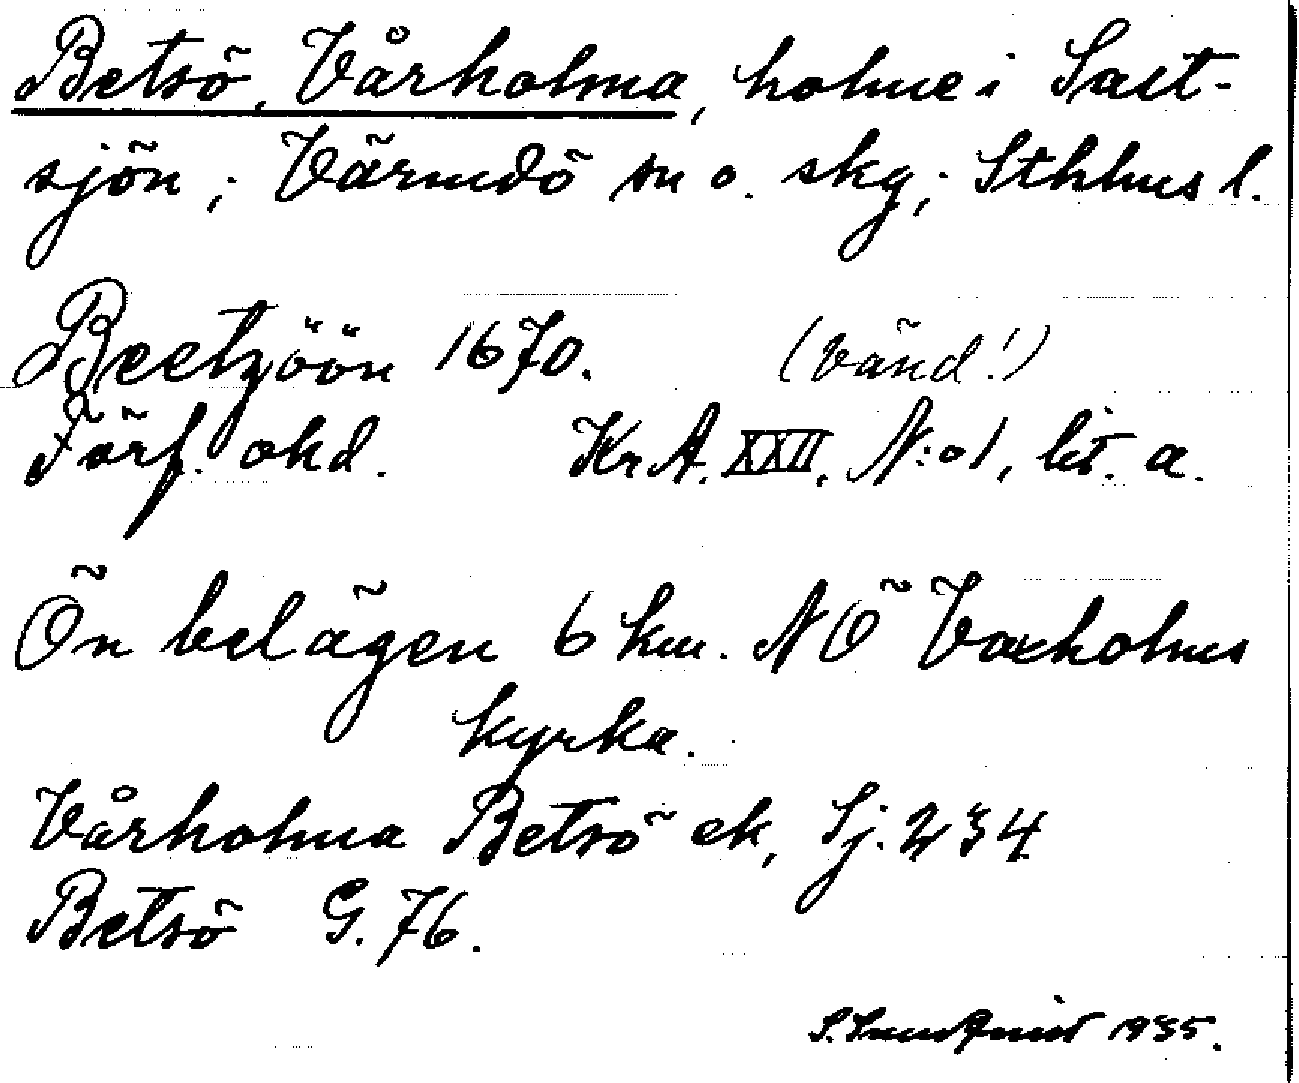 Betsö, Vårholma, holme i Salt-
sjön; Värmdö sn o. skg; Sthlms l.
Beetzöön 1670. (Vänd!)
Förf. okd. Kr A. XXII, N:o 1, lit. a.
Ön belägen 6 km. NÖ Vaxholms
kyrka.
Vårholma Betsö ek, Sj. 234
Betsö G. 76.
1935.